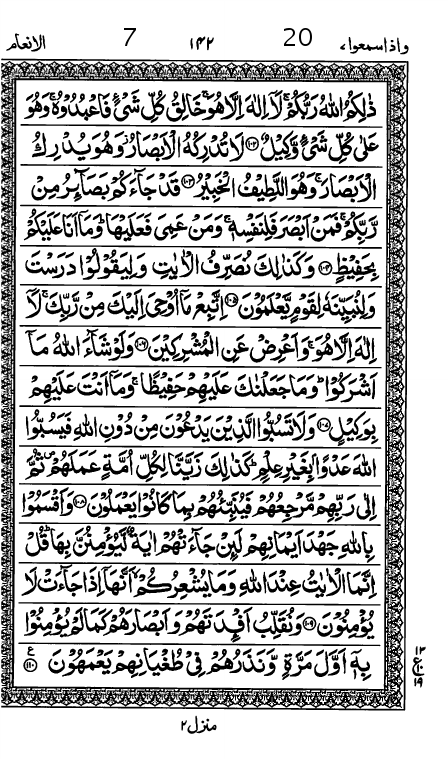 واذاسمعوا، 20 ١٤٢ 7 الانعام
ذٰلِكُمُ اللّٰهُ رَبُّكُمْ ۚ لَاۤ اِلٰهَ اِلَّا هُوَ ۚ خَالِقُ كُلِّ شَیْءٍ فَاعْبُدُوْهُ ۚ وَهُوَ
عَلٰی كُلِّ شَیْءٍ وَّكِیْلٌ ۝١٠٢ لَا تُدْرِكُهُ الْاَبْصَارُ ؗ وَهُوَ یُدْرِكُ
الْاَبْصَارَ ۚ وَهُوَ اللَّطِیْفُ الْخَبِیْرُ ۝١٠٣ قَدْ جَآءَكُمْ بَصَآىِٕرُ مِنْ
رَّبِّكُمْ ۚ فَمَنْ اَبْصَرَ فَلِنَفْسِهٖ ۚ وَمَنْ عَمِیَ فَعَلَیْهَا ؕ وَمَاۤ اَنَا عَلَیْكُمْ
بِحَفِیْظٍ ۝١٠٤ وَكَذٰلِكَ نُصَرِّفُ الْاٰیٰتِ وَلِیَقُوْلُوْا دَرَسْتَ
وَلِنُبَیِّنَهٗ لِقَوْمٍ یَّعْلَمُوْنَ ۝١٠٥ اِتَّبِعْ مَاۤ اُوْحِیَ اِلَیْكَ مِنْ رَّبِّكَ ۚ لَاۤ
اِلٰهَ اِلَّا هُوَ ۚ وَاَعْرِضْ عَنِ الْمُشْرِكِیْنَ ۝١٠٦ وَلَوْ شَآءَ اللّٰهُ مَاۤ
اَشْرَكُوْا ؕ وَمَا جَعَلْنٰكَ عَلَیْهِمْ حَفِیْظًا ۚ وَمَاۤ اَنْتَ عَلَیْهِمْ
بِوَكِیْلٍ ۝١٠٧ وَلَا تَسُبُّوا الَّذِیْنَ یَدْعُوْنَ مِنْ دُوْنِ اللّٰهِ فَیَسُبُّوا
اللّٰهَ عَدْوًۢا بِغَیْرِ عِلْمٍ ؕ كَذٰلِكَ زَیَّنَّا لِكُلِّ اُمَّةٍ عَمَلَهُمْ ۪ ثُمَّ
اِلٰی رَبِّهِمْ مَّرْجِعُهُمْ فَیُنَبِّئُهُمْ بِمَا كَانُوْا یَعْمَلُوْنَ ۝١٠٨ وَاَقْسَمُوْا
بِاللّٰهِ جَهْدَ اَیْمَانِهِمْ لَىِٕنْ جَآءَتْهُمْ اٰیَةٌ لَّیُؤْمِنُنَّ بِهَا ؕ قُلْ
اِنَّمَا الْاٰیٰتُ عِنْدَ اللّٰهِ وَمَا یُشْعِرُكُمْ ۙ اَنَّهَاۤ اِذَا جَآءَتْ لَا
یُؤْمِنُوْنَ ۝١٠٩ وَنُقَلِّبُ اَفْـِٕدَتَهُمْ وَاَبْصَارَهُمْ كَمَا لَمْ یُؤْمِنُوْا
بِهٖۤ اَوَّلَ مَرَّةٍ وَّنَذَرُهُمْ فِیْ طُغْیَانِهِمْ یَعْمَهُوْنَ ۝١١٠ ع
١٣
ع
١٩
منزل ٢